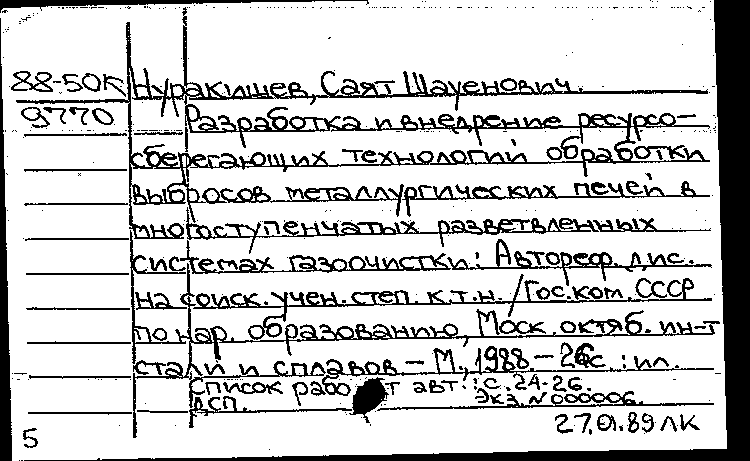 88-50К Нуракишев, Саят Шауенович.
9770 Разработка и внедрение ресурсо-
сберегающих технологий обработки
выбросов металлургических печей в
многоступенчатых разветвленных
системах газоочистки: Автореф. дис.
на соиск. учен. степ. к.т.н. /Гос. ком. СССР
по нар. образованию, Моск. октяб. ин-т
стали и сплавов – М., 1988. – 26с. : ил.
Список работ авт.: с. 24-26.
ДСП. Экз. N 000006.
27.01.89 ЛК
5